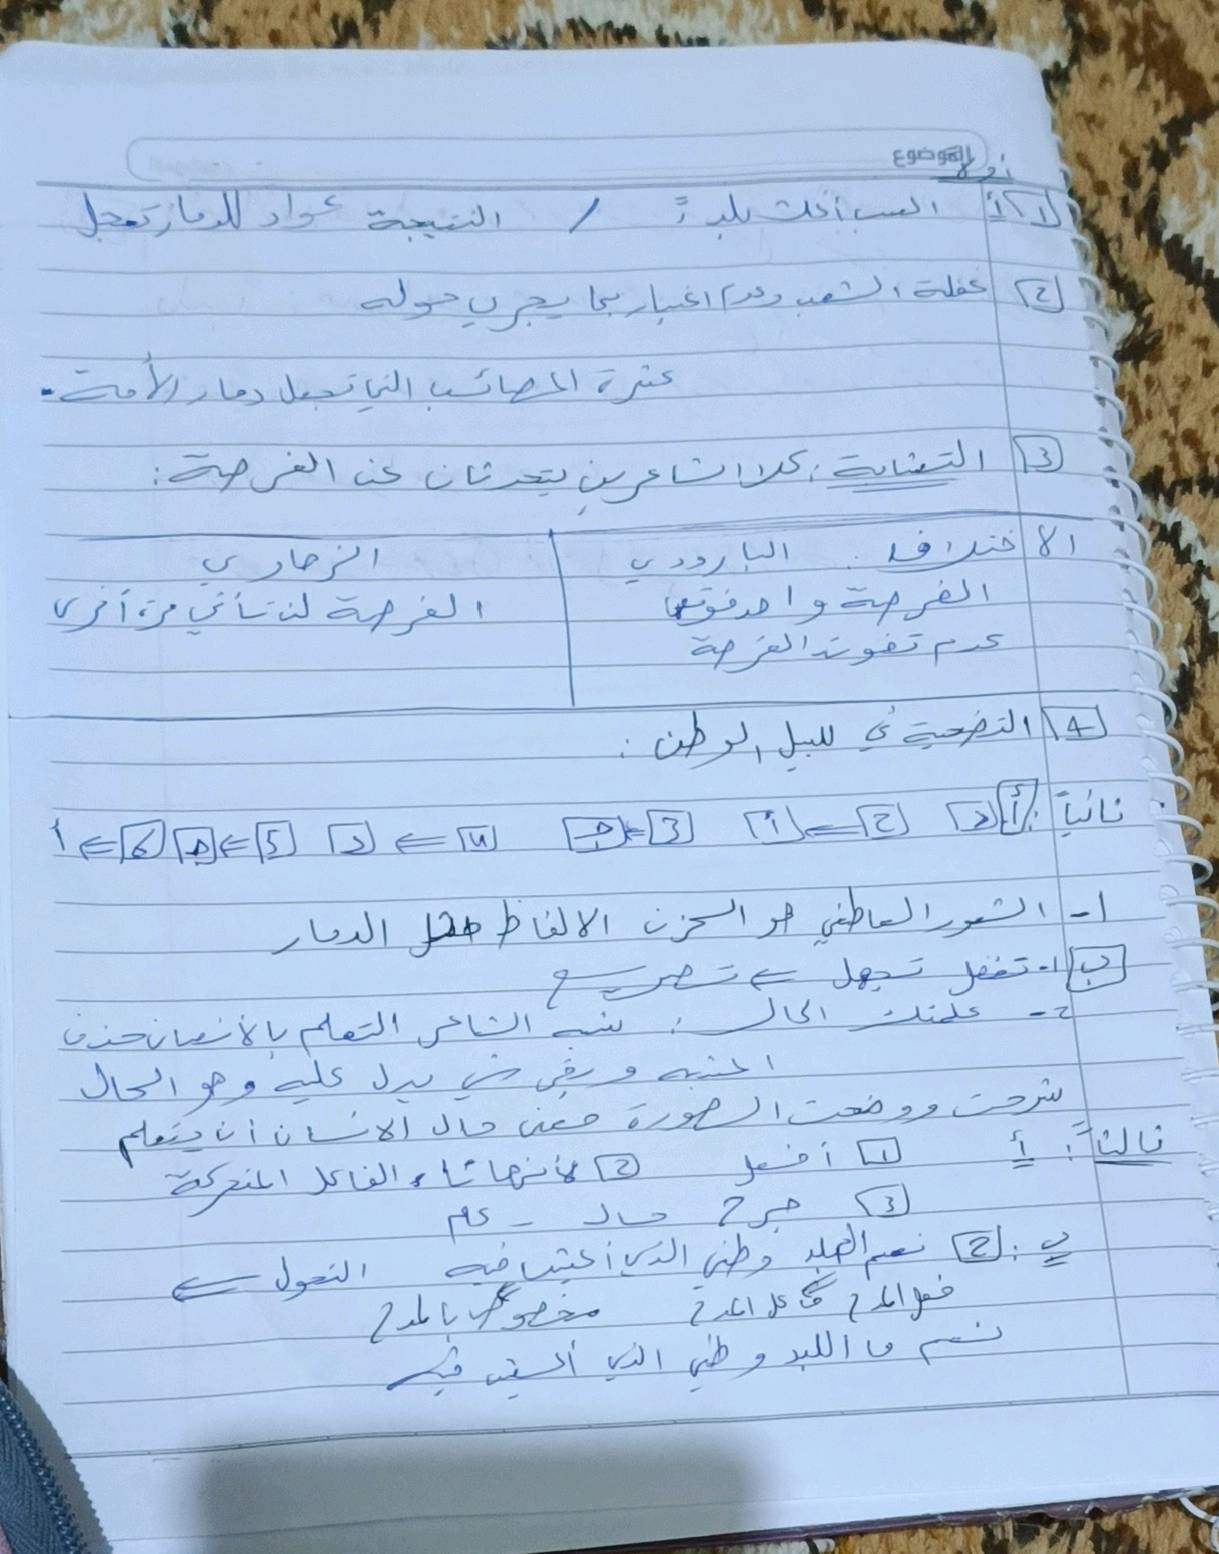 الموضوع
أولاً
1 أ السبب أخلت بلد / النتيجة عواد للدمار تعجل
2 غفلة الشعب وعدم اخبار بما يجري حوله
عثرة المصائب التي تجعل دمار الأمة.
3 التشابه: كلا الشاعرين يتحدثان عن الفرصة:
الاختلاف: البارودي الزهاوي
الفرصة واحد الفرصة لن تأتي مرة أخرى
عدم تفوت الفرصة
4 التضحية في للبيل الوطن:
ثانياً: أ د 2 ⇐ أ 3 ⇐ ج 4 ⇐ د 5 ⇐ ج 6 ⇐ أ
1- الشعور العاطفي هو الحزن الالفاظ الدمار
ب 1- تغفل تجهل ⇐ تصريع
2- علمتك الحال: شبه الشاعر التعلم بالأنسان حذف
المشبه و بقي شي يدل عليه وهو الحال
شرحت ووضحت الصورة معنى حال الانسان أن يتعلم
ثالثاً: أ 1 أفعل 2 لأنها تاء الفاعل المتحركة
3 جرح حال - عام
ب: 2 نعم البلد وطني الذي أعيش فيه التحول ⇐
فعل المدح فاعل المدح مخصوص بالمدح
نعم ما اللبد وطني الذي أعيش فيه